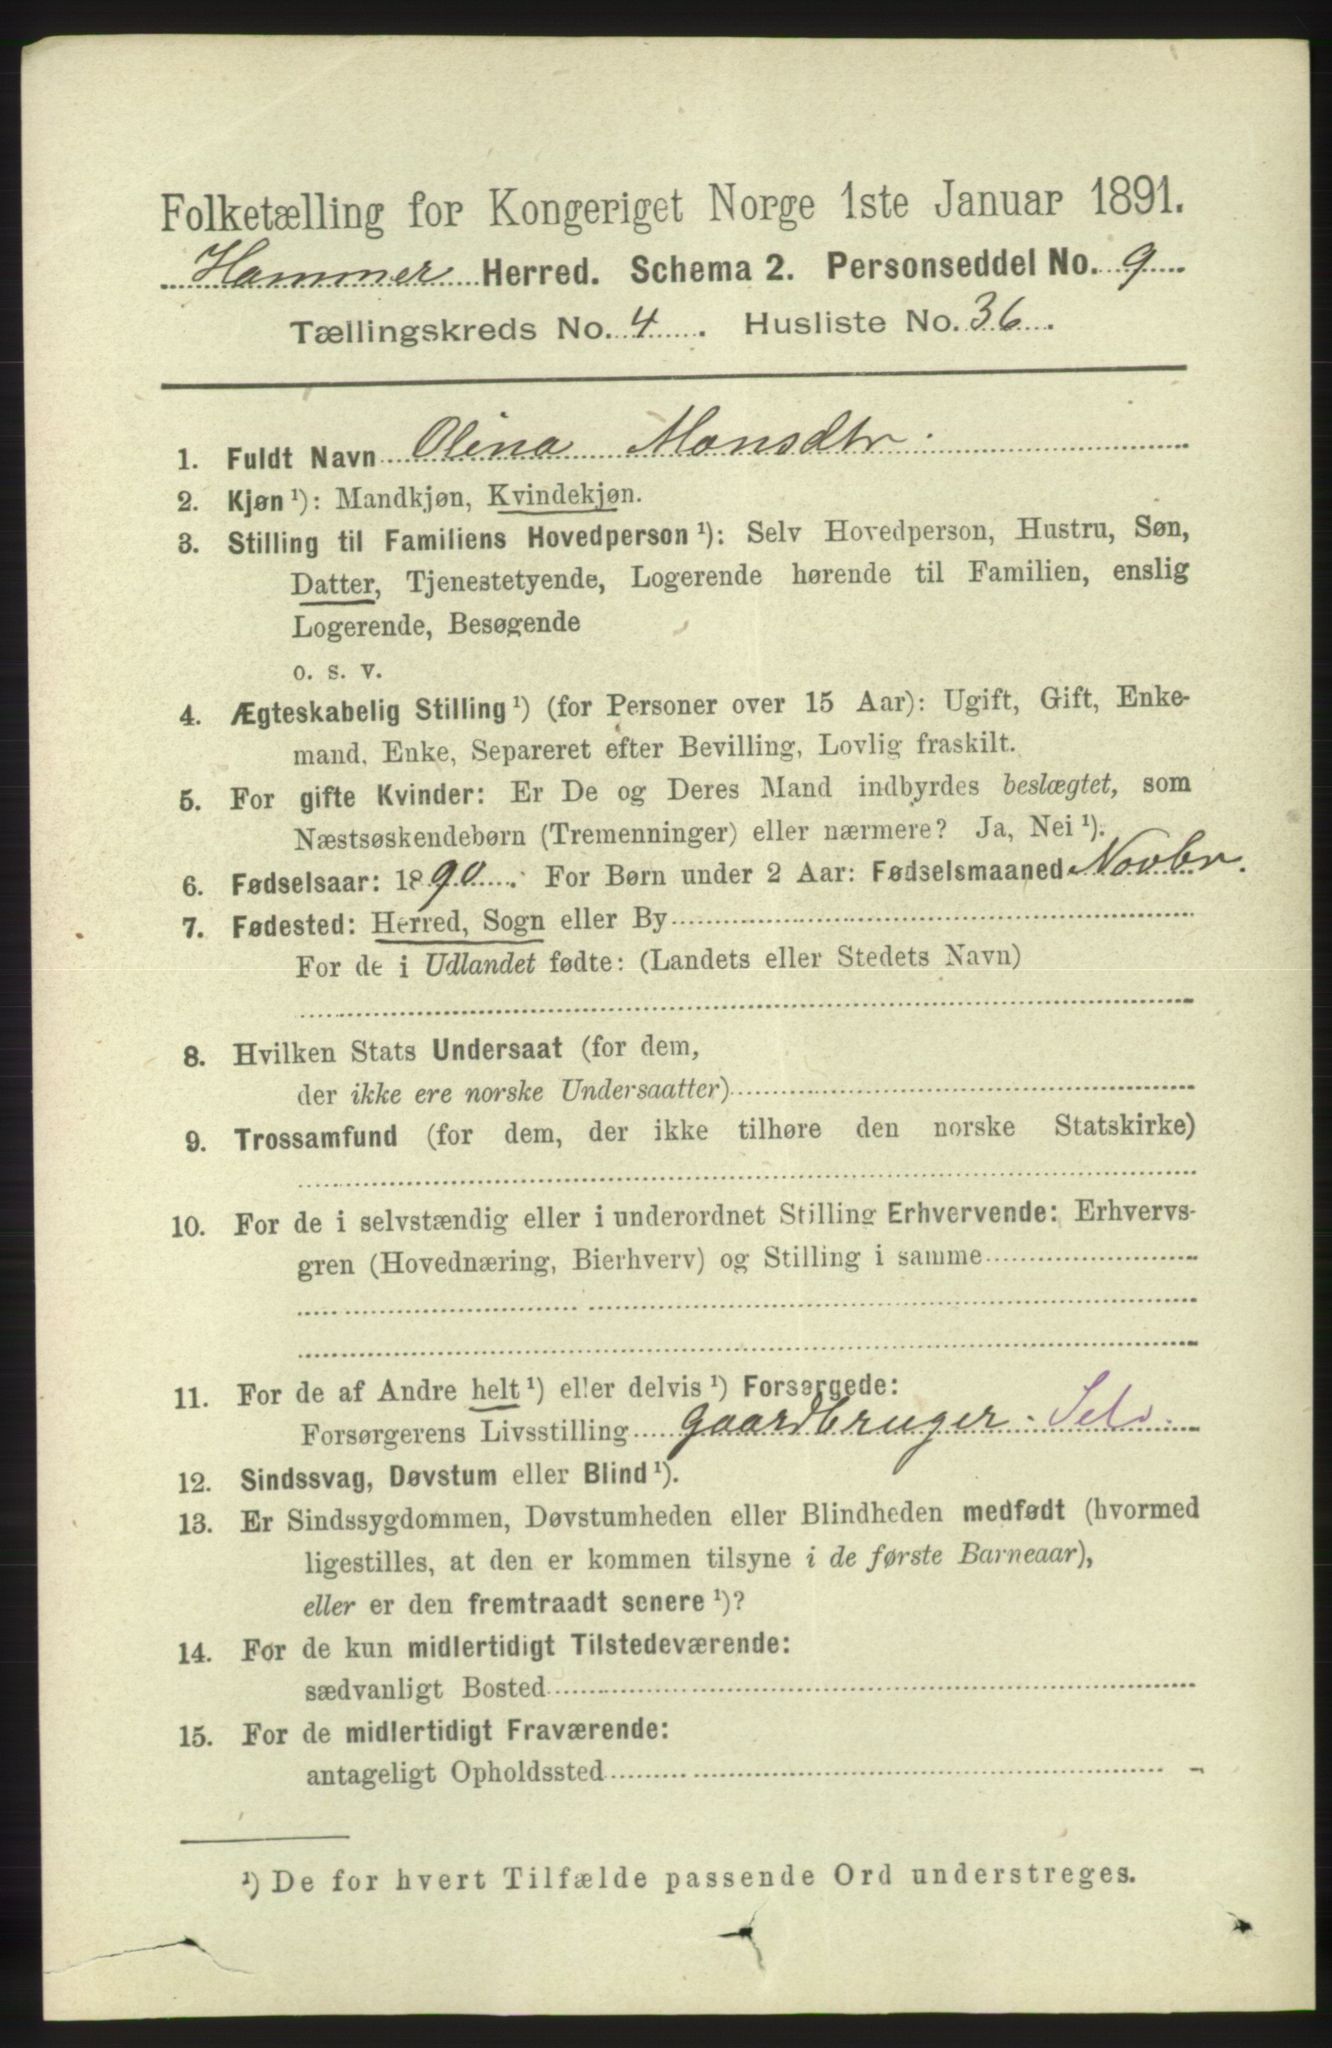 Folketælling for Kongeriget Norge 1ste Januar 1891.
Hammer Herred. Schema 2. Personseddel No. 9
Tællingskreds No. 4. Husliste No. 36.
1. Fuldt Navn Olina Monsdtr.
2. Kjøn ¹): Mandkjøn, Kvindekjøn.
3. Stilling til Familiens Hovedperson ¹): Selv Hovedperson, Hustru, Søn,
Datter, Tjenestetyende, Logerende hørende til Familien, enslig
Logerende, Besøgende
o. s. v.
4. Ægteskabelig Stilling ¹) (for Personer over 15 Aar): Ugift, Gift, Enke-
mand, Enke, Separeret efter Bevilling, Lovlig fraskilt.
5. For gifte Kvinder: Er De og Deres Mand indbyrdes beslægtet, som
Næstsøskendebørn (Tremenninger) eller nærmere? Ja, Nei ¹).
6. Fødselsaar: 1890. For Børn under 2 Aar: Fødselsmaaned Novbr.
7. Fødested: Herred, Sogn eller By
For de i Udlandet fødte: (Landets eller Stedets Navn)
8. Hvilken Stats Undersaat (for dem,
der ikke ere norske Undersaatter)
9. Trossamfund (for dem, der ikke tilhøre den norske Statskirke)
10. For de i selvstændig eller i underordnet Stilling Erhvervende: Erhvervs-
gren (Hovednæring, Bierhverv) og Stilling i samme
11. For de af Andre helt ¹) eller delvis ¹) Forsørgede:
Forsørgerens Livsstilling gaardbruger. Selv.
12. Sindssvag, Døvstum eller Blind ¹).
13. Er Sindssygdommen, Døvstumheden eller Blindheden medfødt (hvormed
ligestilles, at den er kommen tilsyne i de første Barneaar),
eller er den fremtraadt senere ¹)?
14. For de kun midlertidigt Tilstedeværende:
sædvanligt Bosted
15. For de midlertidigt Fraværende:
antageligt Opholdssted
¹) De for hvert Tilfælde passende Ord understreges.